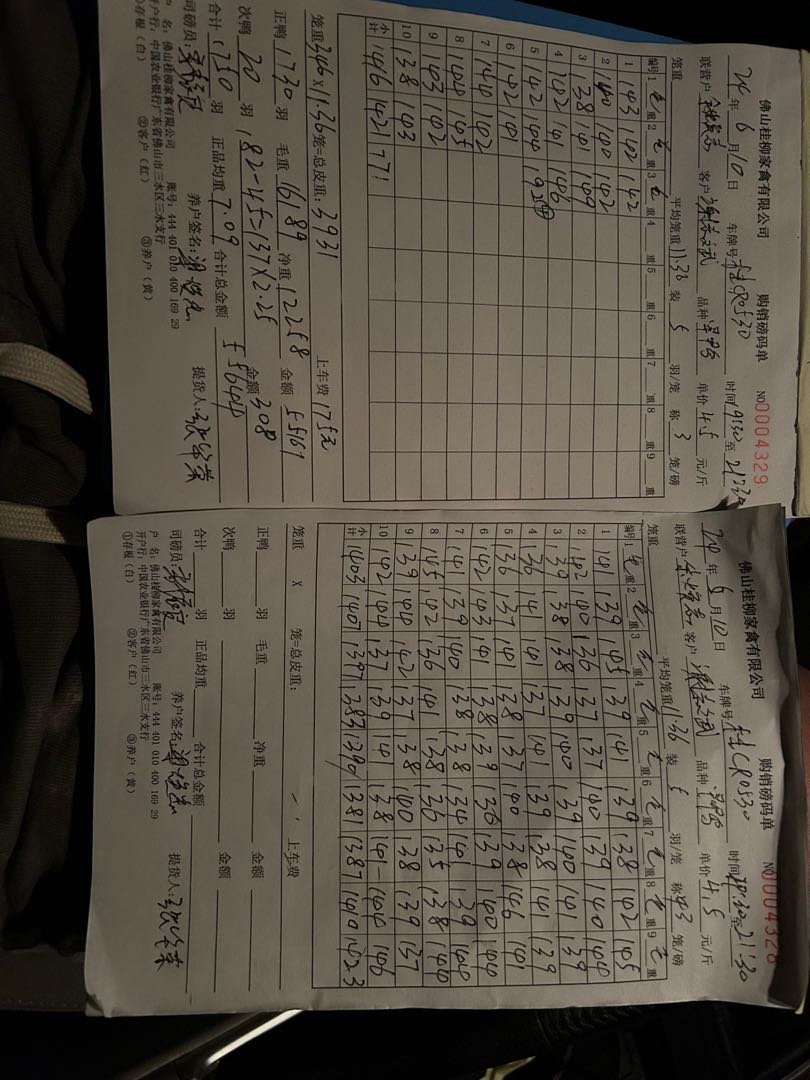 佛山桂柳家禽有限公司 购销磅码单 NO0004329
24年6月10日 车牌号桂CR0530 时间19:30至21:30
联营户 客户 品种 单价4.5元/斤
笼重 平均笼重11.36 装5羽/笼 称3笼/磅
编号 1毛重 2毛重 3毛重 4 重 5 重 6 重 7 重 8 重 9 重
1 143 142 142
2 140 140 142
3 138 141 149
4 142 141 146
5 142 144 192④
6 142 141
7 144 142
8 144 145
9 143 142
10 138 143
小计 1416 1421 771
笼重346X11.36笼=总皮重:3931 上车费175元
正鸭1730羽 毛重16189 净重12258 金额55161
次鸭20羽 182-45=137×2.25 金额308
合计1750羽 正品均重7.09 合计总金额
司磅员: 养户签名: 提货人:
户 名:佛山桂柳家禽有限公司 账号:444 401 010 400 169 29
开户行:中国农业银行广东省佛山市三水区三水支行
①存根(白) ②客户(红) ③养户(黄)
佛山桂柳家禽有限公司 购销磅码单 NO0004328
24年6月10日 车牌号桂CR0530 时间19:30至21:30
联营户 客户 品种 单价4.5元/斤
笼重 平均笼重11.36 装5羽/笼 称3笼/磅
编号 1毛重 2毛重 3毛重 4毛重 5毛重 6毛重 7毛重 8毛重 9毛重
1 141 139 145 139 141 139 138 142 145
2 142 140 136 137 137 140 139 140 144
3 139 138 138 139 140 139 140 141 139
4 136 141 141 137 141 139 138 141 139
5 136 137 141 138 137 140 138 146 141
6 142 143 141 138 139 136 139 140 144
7 141 139 140 138 138 134 141 139 144
8 145 142 136 141 138 136 135 138 144
9 139 144 142 137 138 140 138 139 137
10 142 144 137 139 141 138 141 144 146
小计 1403 1407 1397 1383 1390 1381 1387 1410 1423
笼重 X 笼=总皮重: 上车费
正鸭 羽 毛重 净重 金额
次鸭 羽 金额
合计 羽 正品均重 合计总金额
司磅员: 养户签名: 提货人:
户 名:佛山桂柳家禽有限公司 账号:444 401 010 400 169 29
开户行:中国农业银行广东省佛山市三水区三水支行
①存根(白) ②客户(红) ③养户(黄)